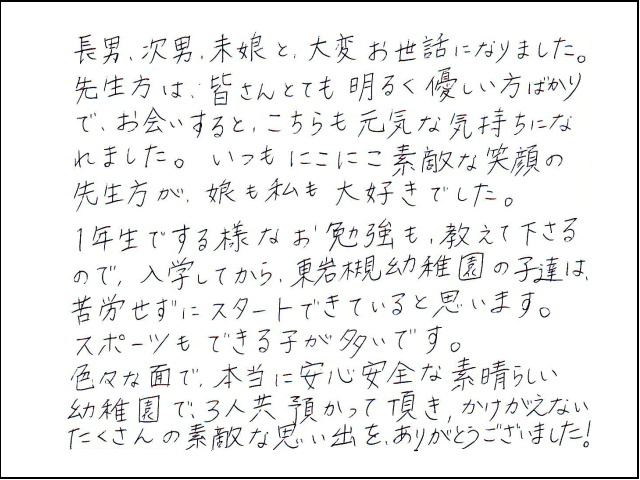 長男、次男、末娘と、大変お世話になりました。
先生方は、皆さんとても明るく優しい方ばかり
で、お会いすると、こちらも元気な気持ちにな
れました。いつもにこにこ素敵な笑顔の
先生方が、娘も私も大好きでした。
1年生でする様なお勉強も、教えて下さる
ので、入学してから、東岩槻幼稚園の子達は、
苦労せずにスタートできていると思います。
スポーツもできる子が多いです。
色々な面で、本当に安心安全な素晴らしい
幼稚園で、3人共預かって頂き、かけがえない
たくさんの素敵な思い出を、ありがとうございました!